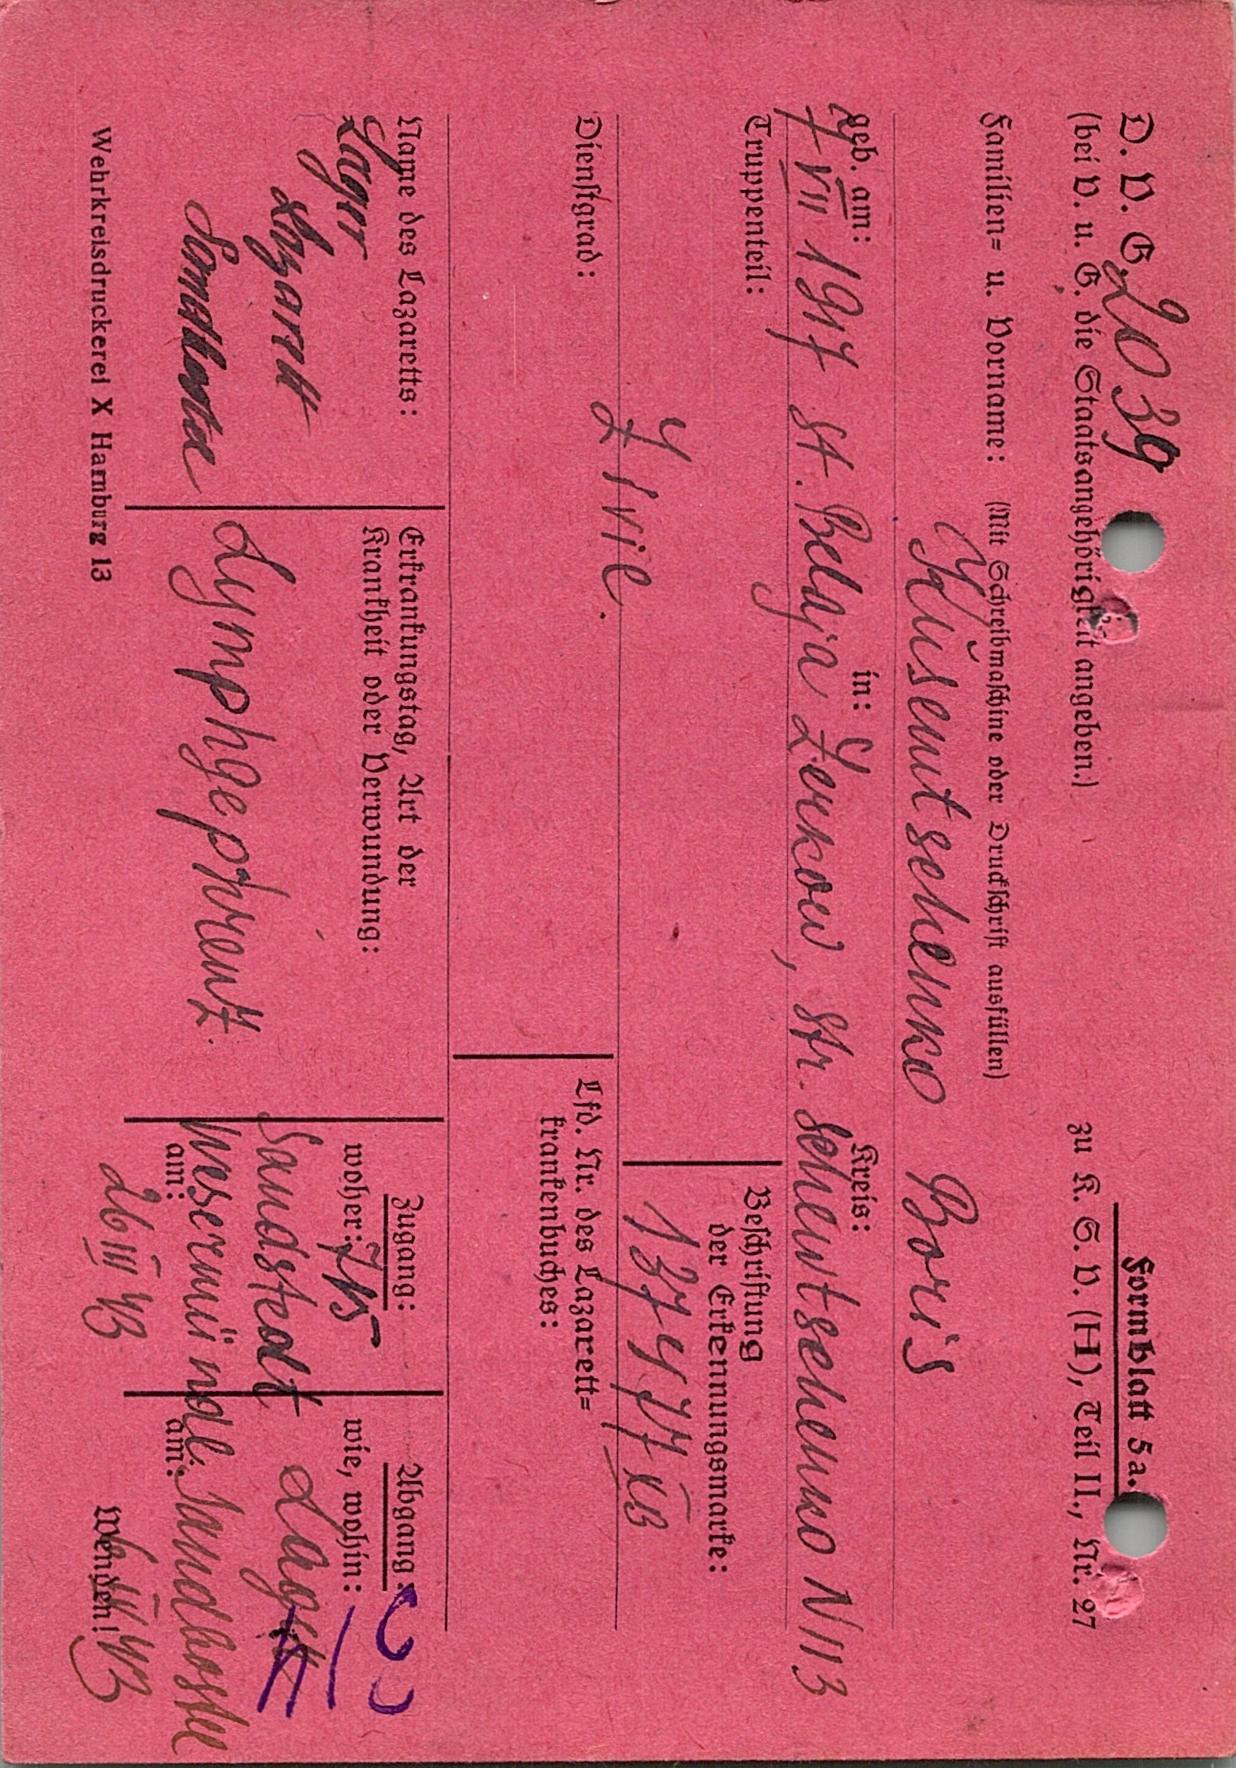 Formblatt 5a.
D. V. G. 2039
zu K. S. V. (H), Teil II., Nr. 27
(bei V. u. G. die Staatsangehörigkeit angeben.)
Familien= u. Vorname: (Mit Schreibmaschine oder Druckschrift ausfüllen)
Küsemtschenko Boris
geb. am: in: Kreis:
7 VII 1917 st. Belaja Zerkow, str. Schewtschenko N 113
Truppenteil:
Beschriftung
der Erkennungsmarke:
137477 XB
Zivil.
Dienstgrad:
Lfd. Nr. des Lazarett=
krankenbuches:
Name des Lazaretts:
Lager
Lazarett
Sandbostel
Erkrankungstag, Art der
Krankheit oder Verwundung:
Lymphgephrent.
Zugang:
woher: 715
Sandstedt
Wesermünde
am:
26 III 43
Abgang:
wie, wohin:
Lager
Sandbostel
am:
43
Wenden!
Wehrkreisdruckerei X Hamburg 13